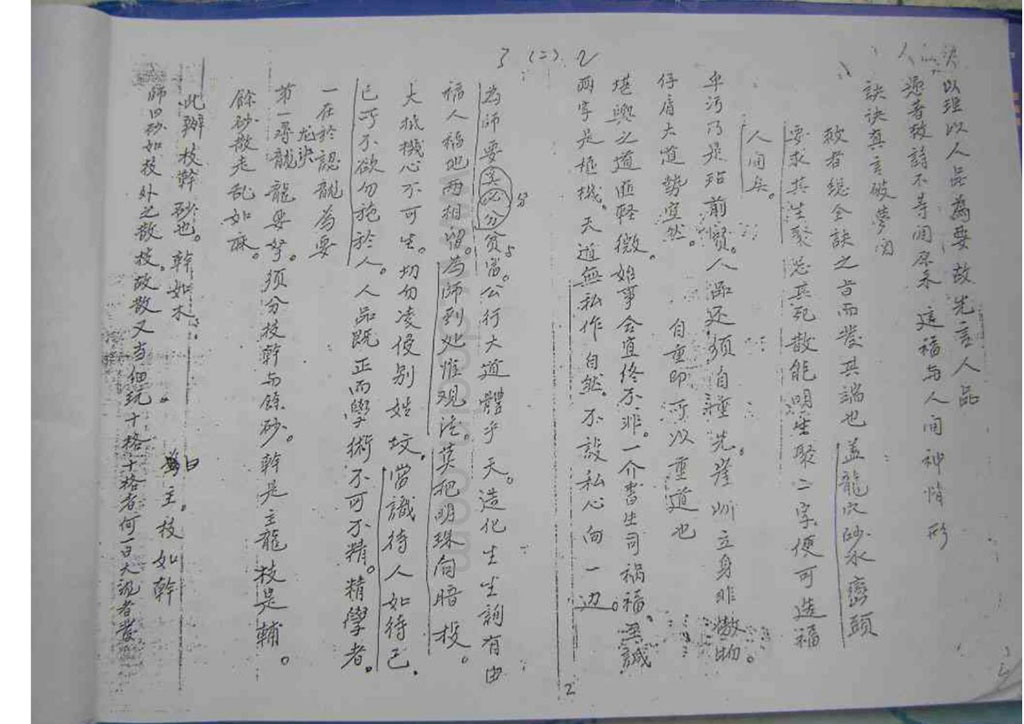 3 (二) 2
以理以人品為要故先言人品
這福与人间神情形
訣訣真言破夢间
敢者总全訣之旨而发其端也盖龍穴砂水巒頭
要求其生聚忌其死散能明生聚二字便可造福
人间矣。
前贤。人品还须自重先崖圳立身非傲物。
仔肩大道势宜然。自重即所以重道也
堪與之道匪轻微。始事会宜终不非。一介書生司禍福。誠
两字是枢機。天道無私作自然。不设私心向一边。
為师要分贫富。公行大道體乎天。造化生生詢有由
福人福地两相留。為师到处惟观德。莫把明珠向暗投。
大抵機心不可生。切勿凌侵别姓坟。當識待人如待己
已所不欲勿施於人。人品既正而學術不可不精。精學者。
一在於認龍為要
龙诀
第一尋龍龍要势。须分枝幹与餘砂。幹是主龍枝是輔。
餘砂散走乱如麻。
此辦枝幹砂也。幹如木
曰主。枝如幹
师曰砂如枝外之散枝。故散又当细玩十格十格者何一曰大说者
2